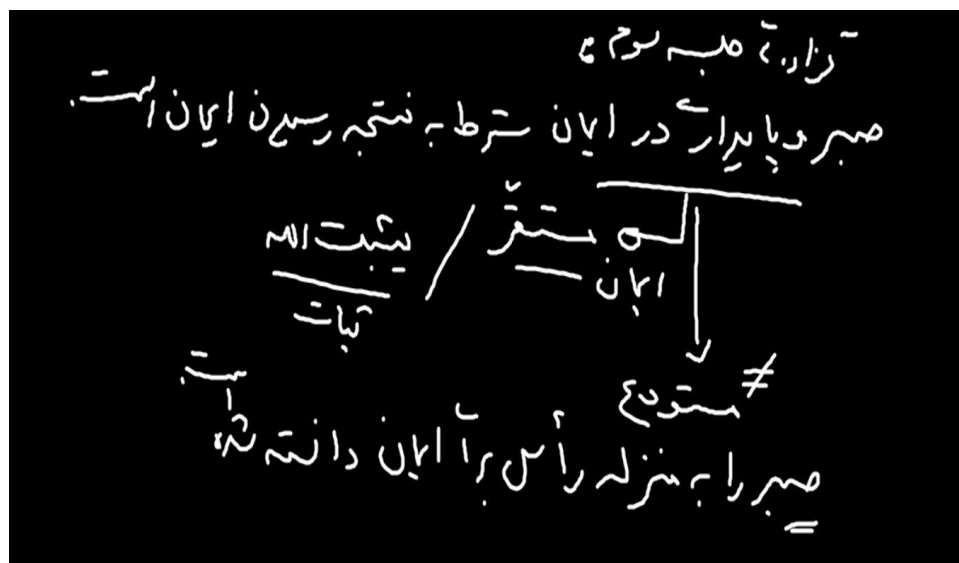 گزاره جلسه سوم:
صبر و پایداری در ایمان شرط به نتیجه رسیدن ایمان است.
مستقرّ / یثبت الله
ایمان ثبات
≠ مستودع
صبر را به منزله رأس برای ایمان دانسته شده است.